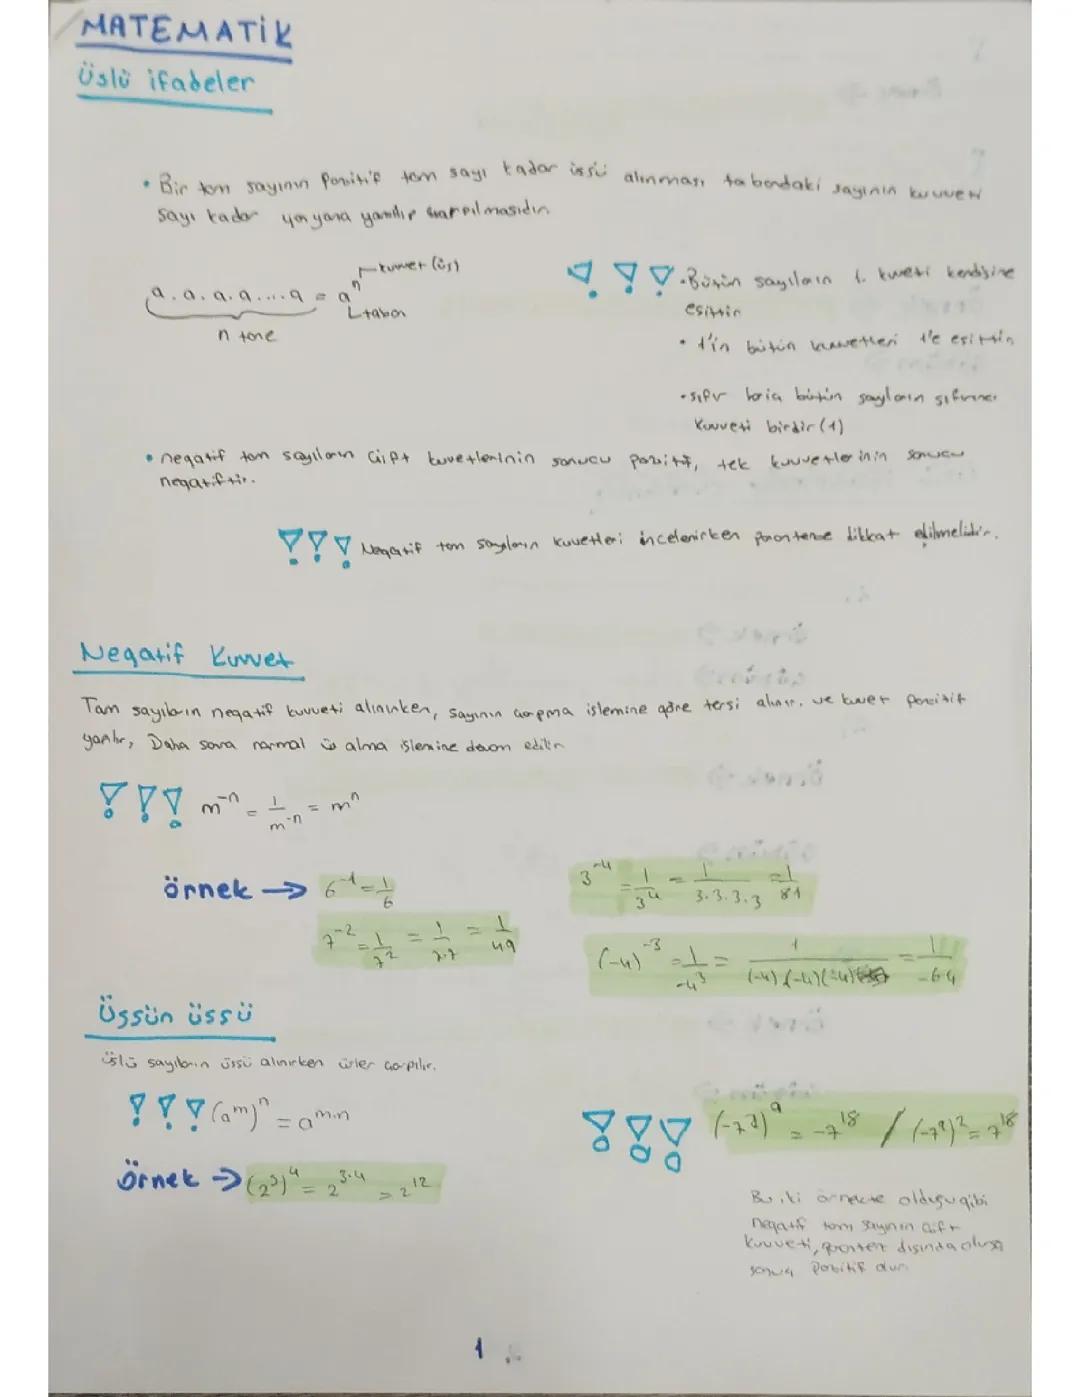 MATEMATİK
Üslü ifadeler
• Bir tam sayının Pozitif tam sayı kadar üssü alınması tabandaki sayının kuvveti
sayı kadar yanyana yazılıp çarpılmasıdır.
kuvvet (üs)
a.a.a.a....a = aⁿ
taban
n tane
• Bütün sayıların 1. kuvveti kendisine
eşittir
• 1'in bütün kuvvetleri 1'e eşittir
• sıfır hariç bütün sayıların sıfırıncı
kuvveti birdir (1)
• negatif tam sayıların çift kuvvetlerinin sonucu pozitif, tek kuvvetlerinin sonucu
negatiftir.
!!! Negatif tam sayıların kuvvetleri incelenirken paranteze dikkat edilmelidir.
Negatif Kuvvet
Tam sayıların negatif kuvveti alınırken, sayının çarpma işlemine göre tersi alınır, ve kuvvet pozitif
yapılır, Daha sonra normal üs alma işlemine devam edilir
!!! m⁻ⁿ = 1/m⁻ⁿ = mⁿ
örnek → 6⁻¹ = 1/6
3⁻⁴ = 1/3⁴ = 1/3.3.3.3 = 1/81
7⁻² = 1/7² = 1/7.7 = 1/49
(-4)⁻³ = 1/-4³ = 1/(-4)(-4)(-4) = 1/-64
Üssün üssü
üslü sayıların üssü alınırken üsler çarpılır.
!!! (aᵐ)ⁿ = aᵐ·ⁿ
!!! (-7²)⁹ = -7¹⁸ / (-7⁹)² = 7¹⁸
örnek → (2³)⁴ = 2³·⁴ = 2¹²
Bu iki örnekte olduğu gibi
negatif tam sayının çift
kuvveti, parantez dışında olursa
sonuç pozitif olur
1